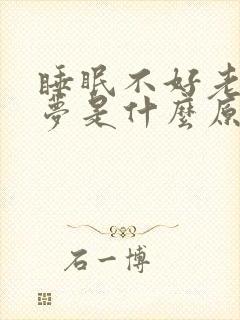 睡眠不好老
夢是什麼原
石一博